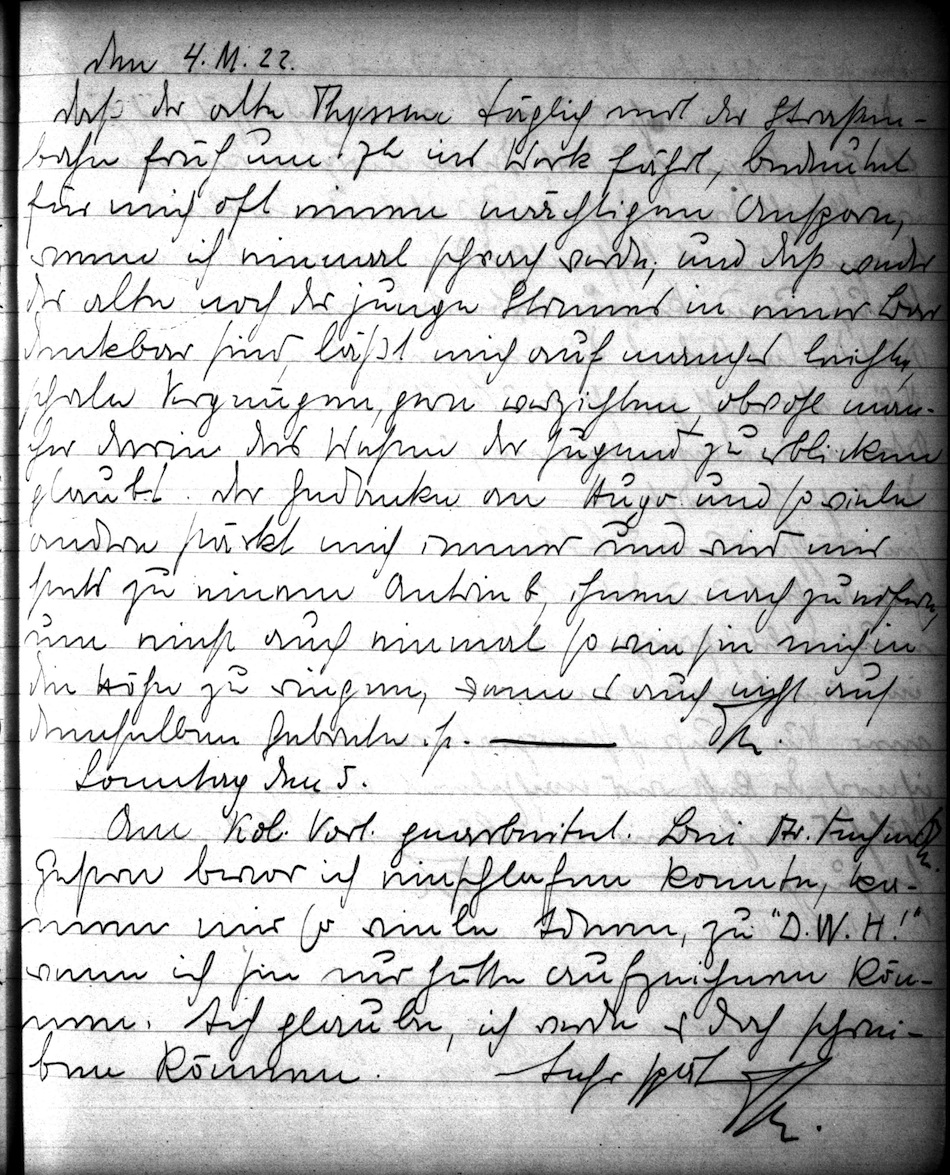 den 4. M. 22.
daß der alte Thyssen täglich mit der Straßen-
bahn früh um 7h ins Werk fährt, bedeutet
für mich oft einen mächtigen Ansporn,
wenn ich einmal schwach werde; und daß weder
der alte noch der junge Stinnes in einer Bar
denkbar sind, läßt mich auf manches leichte,
schale Vergnügen, gern verzichten, obwohl man-
cher darin das Wesen der Jugend zu erblicken
glaubt. Der Gedanke an Hugo und so viele
andere stärkt mich immer und wird mir
stets zu einem Antrieb, ihnen nachzueifern,
um einst auch einmal so wie sie mich in
die Höhe zu ringen, wenn es auch nicht auf
demselben Gebiete ist. —
Sonntag den 5.
Am Kol. Vort. gearbeitet. Bei Dr.
Gestern bevor ich einschlafen konnte, ka-
men mir so viele Ideen, zu "D.W.H!"
wenn ich sie nur hätte aufzeichnen kön-
nen. Ich glaube, ich werde es doch schrei-
ben können. Sehr spät